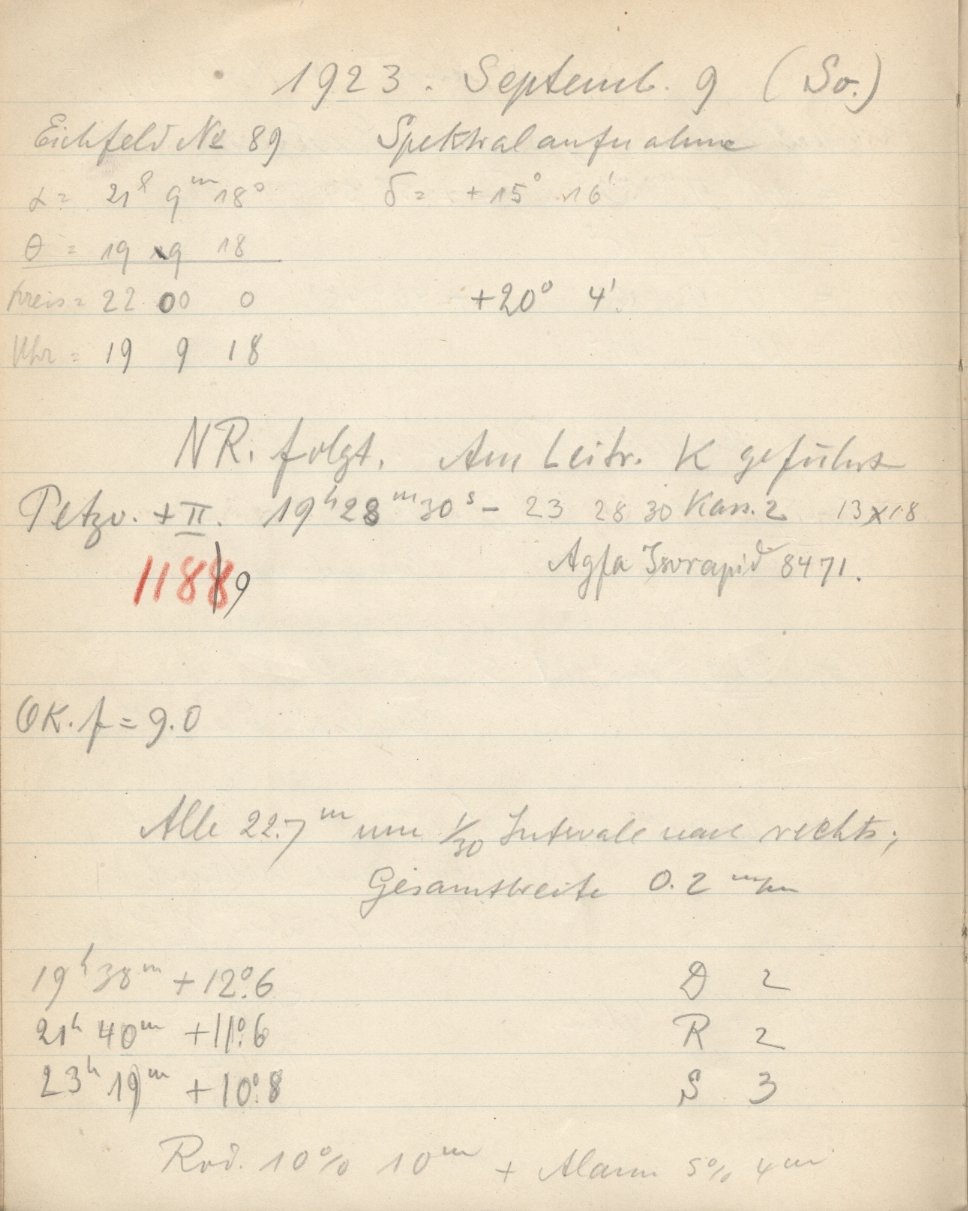 1923. Septemb. 9 (So.)
Eichfeld № 89 Spektralaufnahme
α = 21h 9m 18s δ = +15° 16'
θ = 19 9 18
Kreis = 22 00 0 +20° 4'.
Uhr = 19 9 18
NR. folgt. Am Leitr. K geführt
Petzv. + II. 19h 28m 30s – 23 28 30 Kass. 2 13x18
11889 Agfa Isorapid 8471.
OK. f = 9.0
Alle 22.7m um 1/30 Intervale nach rechts;
Gesamtbreite 0.2 mm
19h 38m +12°.6 D 2
21h 40m +11°.6 R 2
23h 19m +10°.8 S 3
Rod. 10% 10m + Alaun 5% 4m